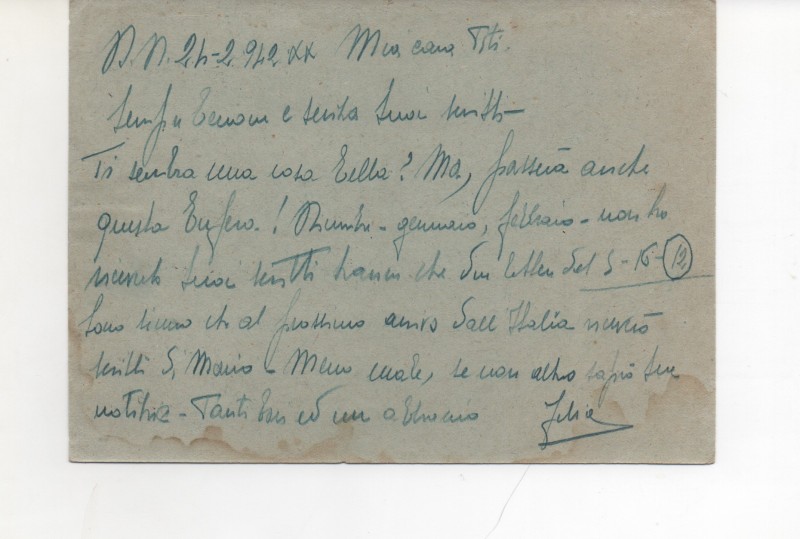 P.M. 24-2-942 XX Mia cara Titi.
Sempre benone e senza tuoi scritti-
Ti sembra una cosa bella? Ma, passerà anche
questa bufera! Dicembre - gennaio, febbraio - non ho
ricevuto tuoi scritti tranne che due lettere del 5-16-12
Sono sicuro che al prossimo arrivo dall'Italia riceverò
scritti di Mario - Meno male, se non altro saprò tue
notizie - Tanti baci ed un abbraccio